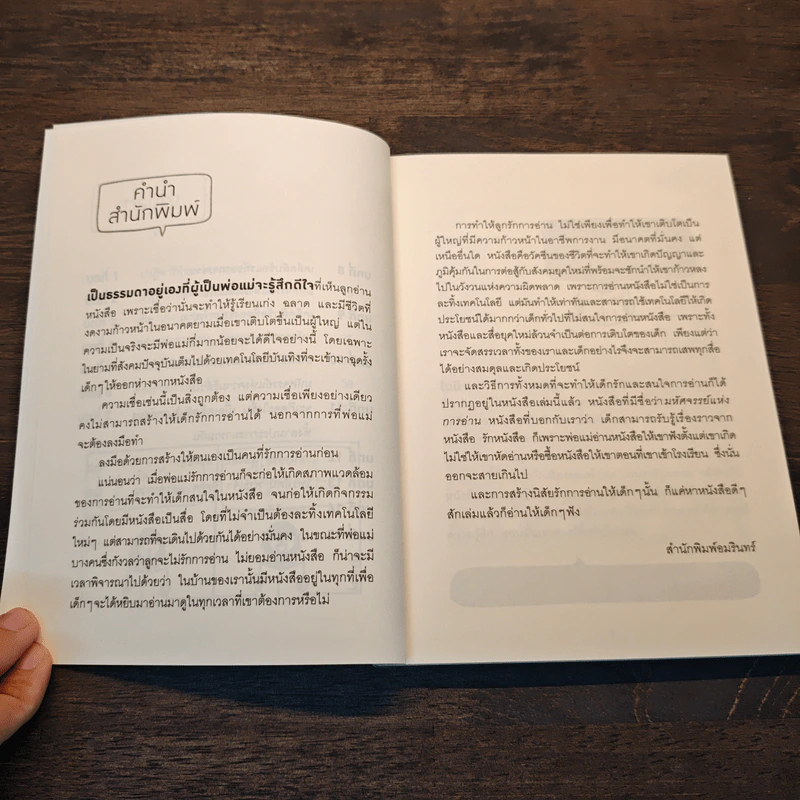 คำนำ
สำนักพิมพ์
เป็นธรรมดาอยู่เองที่ผู้เป็นพ่อแม่จะรู้สึกดีใจที่เห็นลูกอ่าน
หนังสือ เพราะเชื่อว่านั่นจะทำให้รู้เรียนเก่ง ฉลาด และมีชีวิตที่
งดงามก้าวหน้าในอนาคตยามเมื่อเขาเติบโตขึ้นเป็นผู้ใหญ่ แต่ใน
ความเป็นจริงจะมีพ่อแม่ที่มากน้อยจะได้ดีใจอย่างนี้ โดยเฉพาะ
ในยามที่สังคมปัจจุบันเต็มไปด้วยเทคโนโลยีบันเทิงที่จะเข้ามาฉุดรั้ง
เด็กๆ ให้ออกห่างจากหนังสือ
ความเชื่อเช่นนี้เป็นสิ่งถูกต้อง แต่ความเชื่อเพียงอย่างเดียว
คงไม่สามารถสร้างให้เด็กรักการอ่านได้ นอกจากการที่พ่อแม่
จะต้องลงมือทำ
ลงมือด้วยการสร้างให้ตนเองเป็นคนที่รักการอ่านก่อน
แน่นอนว่า เมื่อพ่อแม่รักการอ่านก็จะก่อให้เกิดสภาพแวดล้อม
ของการอ่านที่จะทำให้เด็กสนใจในหนังสือ จนก่อให้เกิดกิจกรรม
ร่วมกันโดยมีหนังสือเป็นสื่อ โดยที่ไม่จำเป็นต้องละทิ้งเทคโนโลยี
ใหม่ๆ แต่สามารถที่จะเดินไปด้วยกันได้อย่างมั่นคง ในขณะที่พ่อแม่
บางคนซึ่งกังวลว่าลูกจะไม่รักการอ่าน ไม่ยอมอ่านหนังสือ ก็น่าจะมี
เวลาพิจารณาไปด้วยว่า ในบ้านของเรานั้นมีหนังสืออยู่ในทุกที่เพื่อ
เด็กๆ จะได้หยิบมาอ่านมาดูในทุกเวลาที่เขาต้องการหรือไม่
การทำให้ลูกรักการอ่าน ไม่ใช่เพียงเพื่อทำให้เขาเติบโตเป็น
ผู้ใหญ่ที่มีความก้าวหน้าในอาชีพการงาน มีอนาคตที่มั่นคง แต่
เหนืออื่นใด หนังสือคือวัคซีนของชีวิตที่จะทำให้เขาเกิดปัญญาและ
ภูมิคุ้มกันในการต่อสู้กับสังคมยุคใหม่ที่พร้อมจะชักนำให้เขาก้าวหลง
ไปในวังวนแห่งความผิดพลาด เพราะการอ่านหนังสือไม่ใช่เป็นการ
ละทิ้งเทคโนโลยี แต่มันทำให้เท่าทันและสามารถใช้เทคโนโลยีให้เกิด
ประโยชน์ได้มากกว่าเด็กทั่วไปที่ไม่สนใจการอ่านหนังสือ เพราะทั้ง
หนังสือและสื่อยุคใหม่ล้วนจำเป็นต่อการเติบโตของเด็ก เพียงแต่ว่า
เราจะจัดสรรเวลาทั้งของเราและเด็กอย่างไรจึงจะสามารถเสพทุกสื่อ
ได้อย่างสมดุลและเกิดประโยชน์
และวิธีการทั้งหมดที่จะทำให้เด็กรักและสนใจการอ่านก็ได้
ปรากฏอยู่ในหนังสือเล่มนี้แล้ว หนังสือที่มีชื่อว่ามหัศจรรย์แห่ง
การอ่าน หนังสือที่บอกกับเราว่า เด็กสามารถรับรู้เรื่องราวจาก
หนังสือ รักหนังสือ ก็เพราะพ่อแม่อ่านหนังสือให้เขาฟังตั้งแต่เขาเกิด
ไม่ใช่ให้เขาหัดอ่านหรือซื้อหนังสือให้เขาตอนที่เขาเข้าโรงเรียน ซึ่งนั่น
ออกจะสายเกินไป
และการสร้างนิสัยรักการอ่านให้เด็กๆ นั้น ก็แค่หาหนังสือดีๆ
สักเล่มแล้วก็อ่านให้เด็กๆ ฟัง
สำนักพิมพ์อมรินทร์